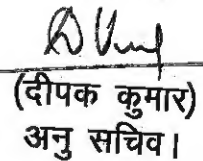 (दीपक कुमार)
अनु सचिव।